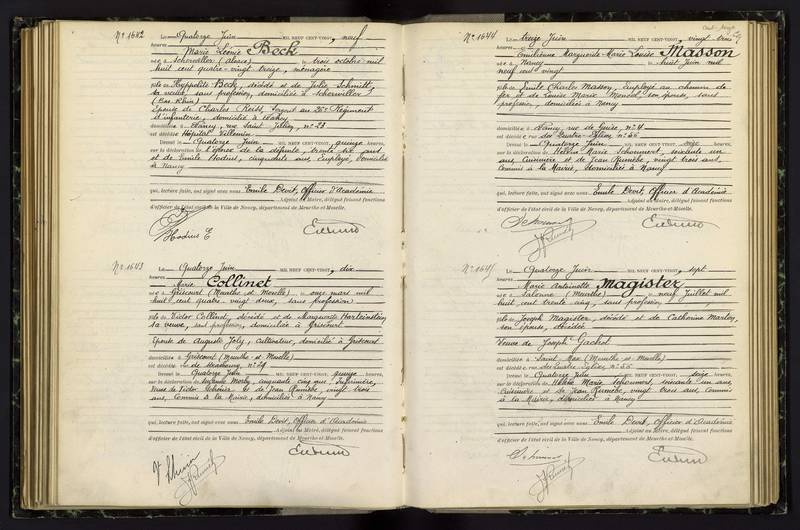 N° 1642 Le Quatorze Juin MIL NEUF CENT-VINGT, neuf
heures,
Marie Léonie Beck
né e à Scherwiller (alsace) le trois octobre mil
huit cent quatre-vingt treize, ménagère
fille de Hyppolite Beck, décédé et de Julie Schmitt,
sa veuve, sans profession, domiciliée à Scherwiller
(Bas Rhin)
Epouse de Charles Reibs, Sergent au 26e Régiment
d'infanterie, domicilié à Nancy
domiciliée à Nancy, rue Saint Julien, n° 23
est décédée Hôpital Villemin
Dressé le Quatorze Juin MIL NEUF CENT-VINGT, quinze heures,
sur la déclaration de l'époux de la défunte, trente six ans
et de Emile Hodius, cinquante ans, Employé, domiciliés
à Nancy
qui, lecture faite, ont signé avec nous Emile Devit, Officier d'Académie
Adjoint au Maire, délégué faisant fonctions
d'officier de l'état civil de la Ville de Nancy, département de Meurthe-et-Moselle.
Hodius E
N° 1643 Le Quatorze Juin MIL NEUF CENT-VINGT, dix
heures,
Marie Collinet
né e à Griscourt (Meurthe et Moselle) le onze mars mil
huit cent quatre-vingt deux, sans profession
fille de Victor Collinet, décédé et de Marguerite
sa veuve, sans profession, domiciliée à Griscourt
Epouse de Auguste Joly, Cultivateur, domicilié à Griscourt
domiciliée à Griscourt (Meurthe et Moselle)
est décédée rue de Strasbourg, n° 29
Dressé le Quatorze Juin MIL NEUF CENT-VINGT, quinze heures,
sur la déclaration de cinquante cinq ans, Infirmière,
et de Jean Runèche, vingt trois
ans, Commis à la Mairie, domiciliés à Nancy
qui, lecture faite, ont signé avec nous Emile Devit, Officier d'Académie
Adjoint au Maire, délégué faisant fonctions
d'officier de l'état civil de la Ville de Nancy, département de Meurthe-et-Moselle.
N° 1644 Le treize Juin MIL NEUF CENT-VINGT, vingt trois
heures,
Emilienne Marguerite Marie Louise Masson
né e à Nancy le huit Juin mil
neuf cent vingt
fille de Emile Charles Masson, Employé au chemin de
fer et de Louise Marie son épouse, sans
profession, domiciliés à Nancy
domiciliée à Nancy, rue de Guise, n° 4
est décédée rue des Quatre Eglises n° 65
Dressé le Quatorze Juin MIL NEUF CENT-VINGT, seize heures,
sur la déclaration de Marie Schoumert, soixante un
ans, Cuisinière et de Jean Runèche, vingt trois ans,
Commis à la Mairie, domiciliés à Nancy
qui, lecture faite, ont signé avec nous Emile Devit, Officier d'Académie
Adjoint au Maire, délégué faisant fonctions
d'officier de l'état civil de la Ville de Nancy, département de Meurthe-et-Moselle.
N° 1645 Le Quatorze Juin MIL NEUF CENT-VINGT, sept
heures,
Marie Antoinette Magister
né e à Lalonne (Meurthe) le neuf Juillet mil
huit cent trente cinq, sans profession
fille de Joseph Magister, décédé et de Catherine Marlon,
son épouse, décédée
Veuve de Joseph Gachot
domiciliée à Saint Max (Meurthe et Moselle)
est décédée rue des Quatre Eglises n° 65
Dressé le Quatorze Juin MIL NEUF CENT-VINGT, seize heures,
sur la déclaration de Marie Schoumert, soixante un ans,
Cuisinière et de Jean Runèche, vingt trois ans, Commis
à la Mairie, domiciliés à Nancy
qui, lecture faite, ont signé avec nous Emile Devit, Officier d'Académie
Adjoint au Maire, délégué faisant fonctions
d'officier de l'état civil de la Ville de Nancy, département de Meurthe-et-Moselle.